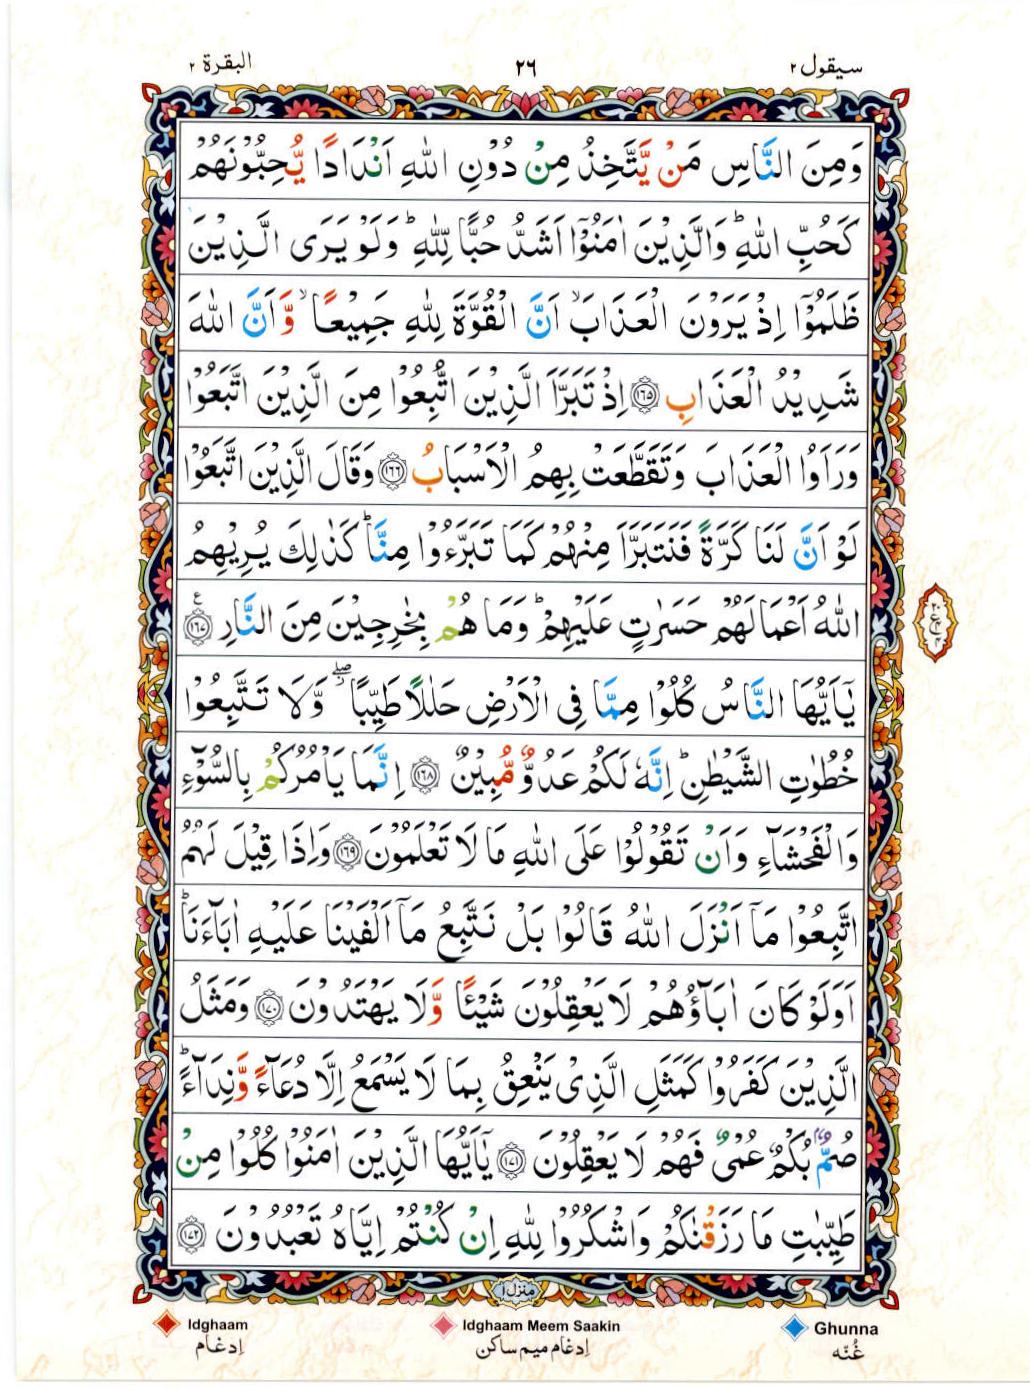 البقرة ٢ ٢٦ سيقول ٢
وَمِنَ النَّاسِ مَنْ يَّتَّخِذُ مِنْ دُوْنِ اللّٰهِ اَنْدَادًا يُّحِبُّوْنَهُمْ
كَحُبِّ اللّٰهِ ؕ وَالَّذِيْنَ اٰمَنُوْۤا اَشَدُّ حُبًّا لِّلّٰهِ ؕ وَلَوْ يَرَى الَّذِيْنَ
ظَلَمُوْۤا اِذْ يَرَوْنَ الْعَذَابَ ۙ اَنَّ الْقُوَّةَ لِلّٰهِ جَمِيْعًا ۙ وَّاَنَّ اللّٰهَ
شَدِيْدُ الْعَذَابِ ﴿١٦٥﴾ اِذْ تَبَرَّاَ الَّذِيْنَ اتُّبِعُوْا مِنَ الَّذِيْنَ اتَّبَعُوْا
وَرَاَوُا الْعَذَابَ وَتَقَطَّعَتْ بِهِمُ الْاَسْبَابُ ﴿١٦٦﴾ وَقَالَ الَّذِيْنَ اتَّبَعُوْا
لَوْ اَنَّ لَنَا كَرَّةً فَنَتَبَرَّاَ مِنْهُمْ كَمَا تَبَرَّءُوْا مِنَّا ؕ كَذٰلِكَ يُرِيْهِمُ
اللّٰهُ اَعْمَالَهُمْ حَسَرٰتٍ عَلَيْهِمْ ؕ وَمَا هُمْ بِخٰرِجِيْنَ مِنَ النَّارِ ﴿١٦٧﴾ ع
يٰۤاَيُّهَا النَّاسُ كُلُوْا مِمَّا فِى الْاَرْضِ حَلٰلًا طَيِّبًا ۖ وَّلَا تَتَّبِعُوْا
خُطُوٰتِ الشَّيْطٰنِ ؕ اِنَّهٗ لَكُمْ عَدُوٌّ مُّبِيْنٌ ﴿١٦٨﴾ اِنَّمَا يَاْمُرُكُمْ بِالسُّوْٓءِ
وَالْفَحْشَآءِ وَاَنْ تَقُوْلُوْا عَلَى اللّٰهِ مَا لَا تَعْلَمُوْنَ ﴿١٦٩﴾ وَاِذَا قِيْلَ لَهُمُ
اتَّبِعُوْا مَاۤ اَنْزَلَ اللّٰهُ قَالُوْا بَلْ نَتَّبِعُ مَاۤ اَلْفَيْنَا عَلَيْهِ اٰبَآءَنَا ؕ
اَوَلَوْ كَانَ اٰبَآؤُهُمْ لَا يَعْقِلُوْنَ شَيْـًٔا وَّلَا يَهْتَدُوْنَ ﴿١٧٠﴾ وَمَثَلُ
الَّذِيْنَ كَفَرُوْا كَمَثَلِ الَّذِىْ يَنْعِقُ بِمَا لَا يَسْمَعُ اِلَّا دُعَآءً وَّنِدَآءً ؕ
صُمٌّۢ بُكْمٌ عُمْىٌ فَهُمْ لَا يَعْقِلُوْنَ ﴿١٧١﴾ يٰۤاَيُّهَا الَّذِيْنَ اٰمَنُوْا كُلُوْا مِنْ
طَيِّبٰتِ مَا رَزَقْنٰكُمْ وَاشْكُرُوْا لِلّٰهِ اِنْ كُنْتُمْ اِيَّاهُ تَعْبُدُوْنَ ﴿١٧٢﴾
منزل ١
Idghaam Idghaam Meem Saakin Ghunna
اِدغام اِدغام ميم ساكن غُنّه